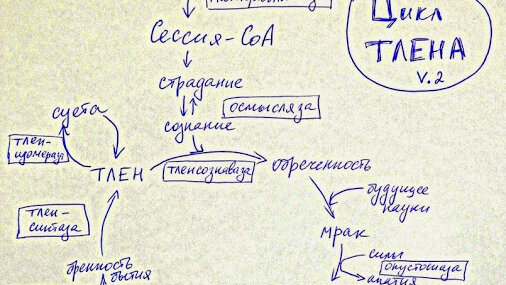 Цикл
ТЛЕНА
v.2
Сессия-CoA
страдание
осмысляза
сознание
суета
тлен-
изомераза
ТЛЕН
тленсознаваза
обреченность
будущее
науки
тлен-
синтаза
мрак
бренность
бытия
силы
опустошаза
апатия